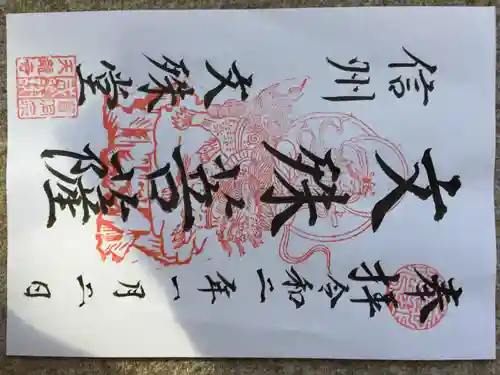 奉拝 令和二年一月二日
文殊菩薩
信州 文殊堂